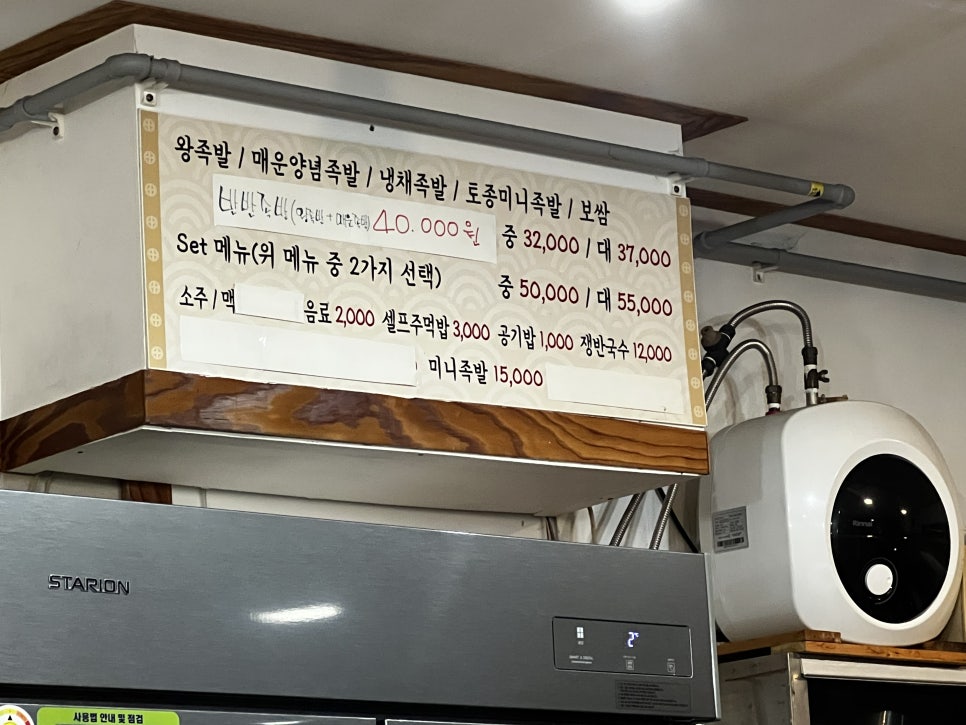 왕족발 / 매운양념족발 / 냉채족발 / 토종미니족발 / 보쌈
반반족발 40.000원
중 32,000 / 대 37,000
Set 메뉴(위 메뉴 중 2가지 선택)
중 50,000 / 대 55,000
소주 / 맥 음료 2,000 셀프주먹밥 3,000 공기밥 1,000 쟁반국수 12,000
미니족발 15,000
Rinnai
STARION
2℃
사용법 안내 및 점검